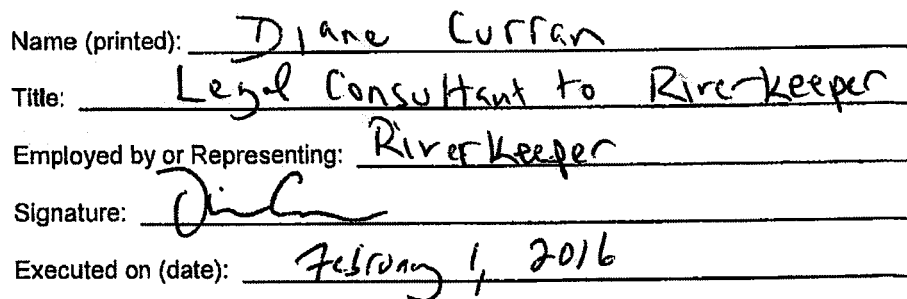 Name (printed): Diane Curran
Title: Legal Consultant to Riverkeeper
Employed by or Representing: Riverkeeper
Signature:
Executed on (date): February 1, 2016